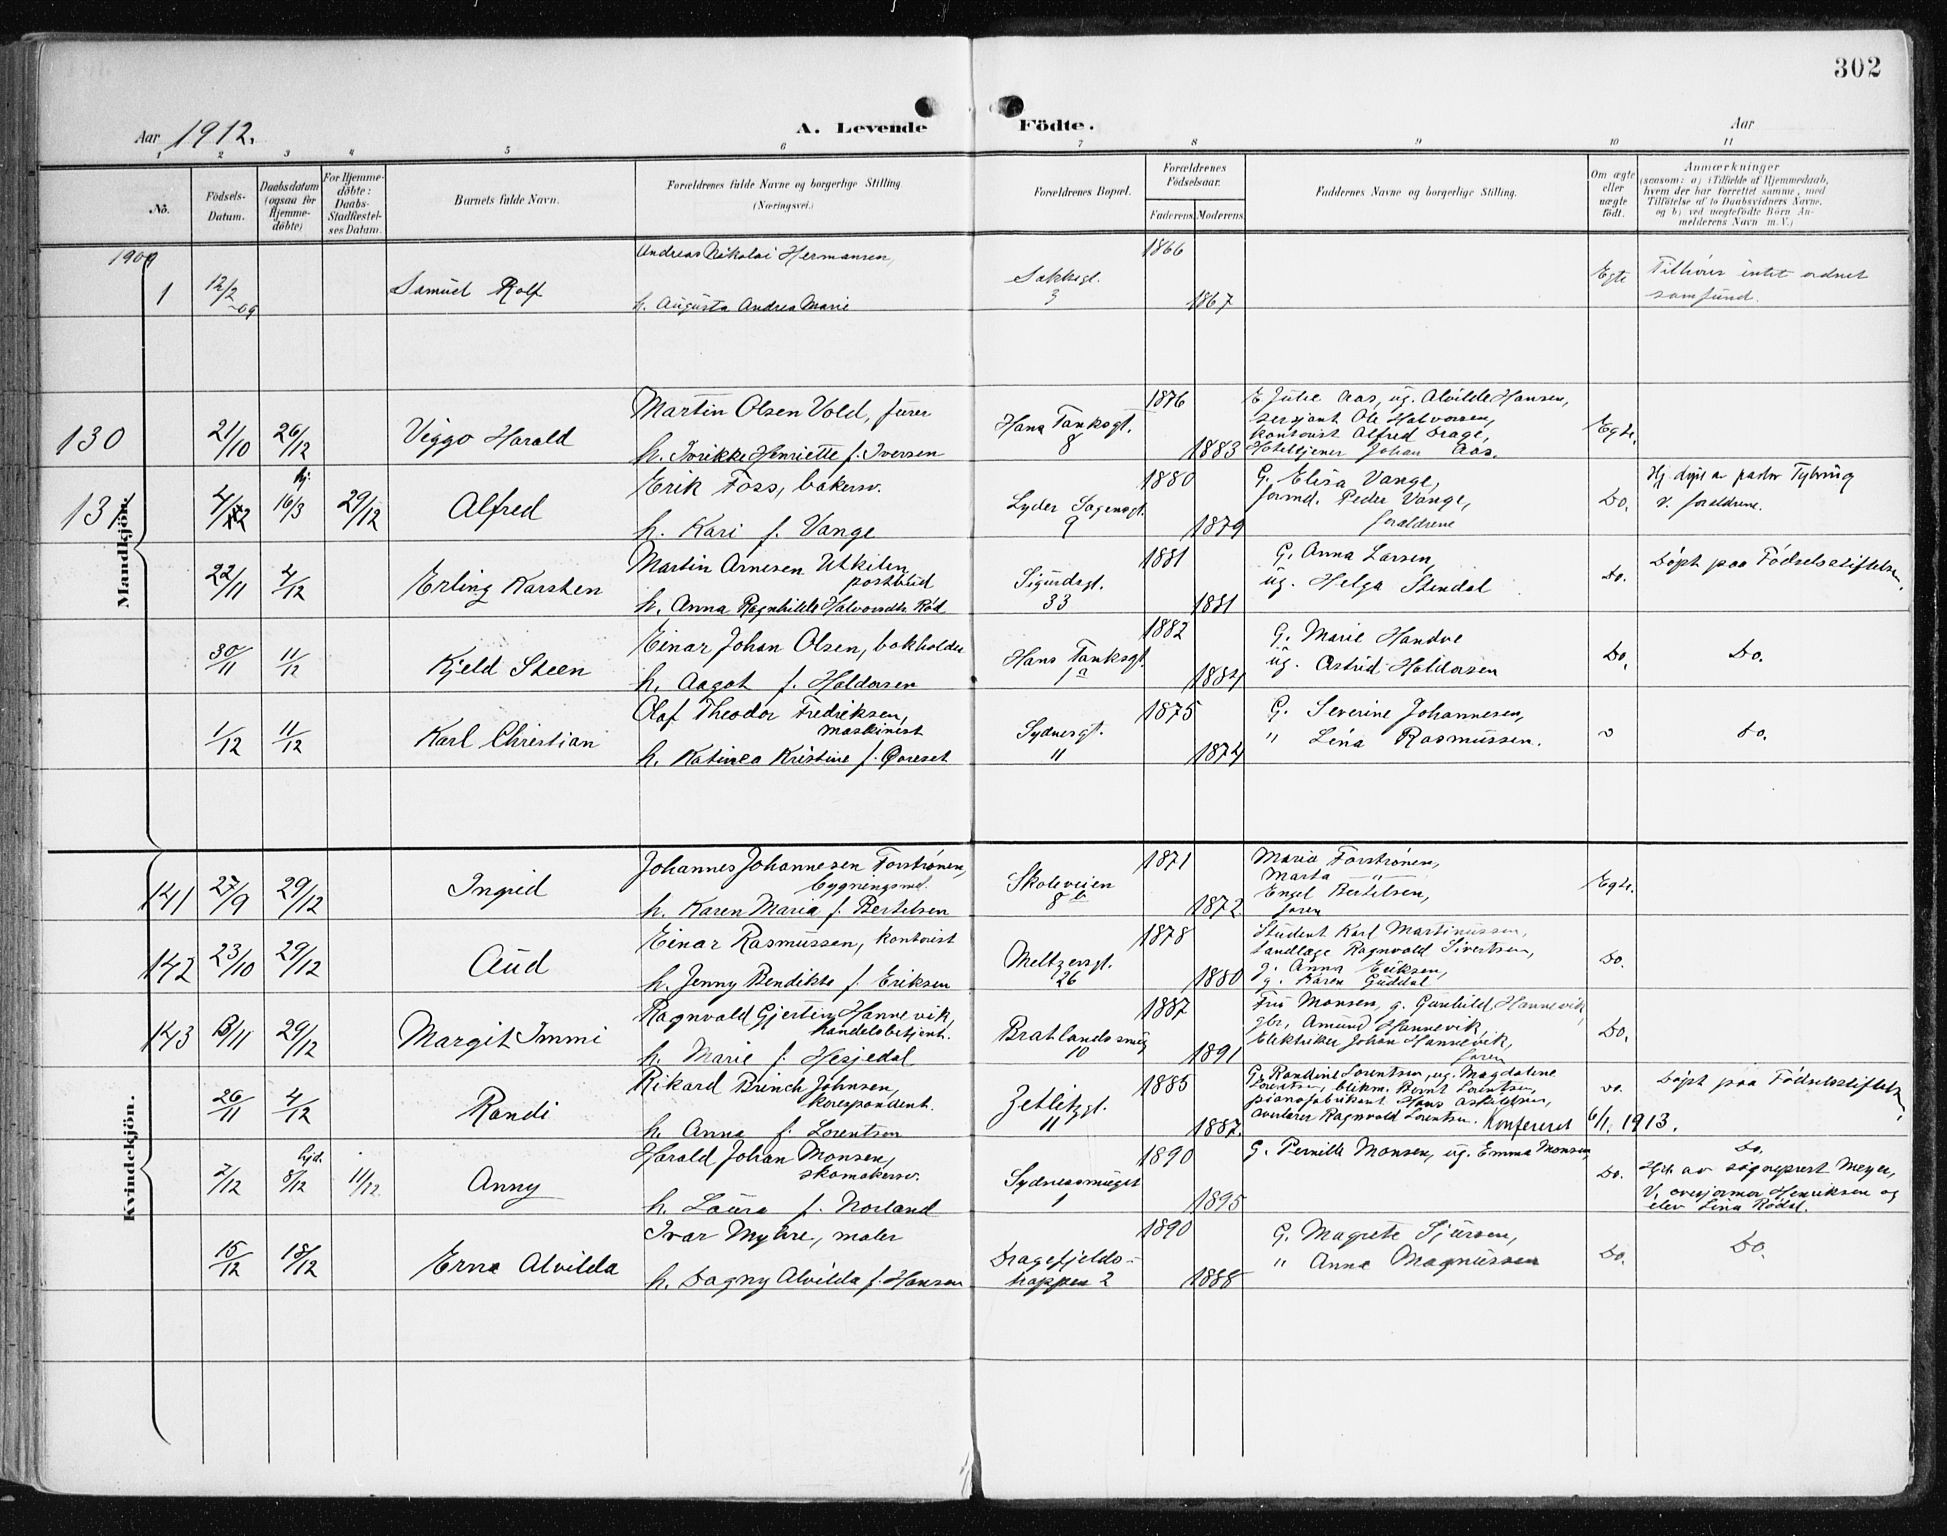 302
Aar 1912.
A. Levende Födte.
Aar
1 2 3 4 5 6 7 8 9 10 11
No.
Födsels-Datum.
Daabsdatum (ogsaa for Hjemmedöbte)
For Hjemmedöbte: Daabs-Stadfæstelses Datum.
Barnets fulde Navn.
Forældrenes fulde Navne og borgerlige Stilling (Næringsvei.)
Forældrenes Bopæl.
Forældrenes Födselsaar.
Faderens Moderens
Faddernes Navne og borgerlige Stilling.
Om ægte eller uægte födt.
Anmærkninger
(saasom: a) i Tilfælde af Hjemmedaab,
hvem der har forrettet samme, med
Tilföielse af to Daabsvidners Navne,
og b) ved uægtefödte Börn Anmelderens Navn m. V.)
Mandkjön.
1909
1 12/2 -09 Samuel Rolf
Andreas Nikolai Hermansen,
h. Augusta Andrea Marie
Sakkegt. 3
1866 1867
Egte
Tilhører intet ordnet
samfund.
130 21/10 26/12 Viggo Harald
Martin Olsen Vold, furer
h. Henriette f. Iversen
Hans Tanksgt. 8
1876 1883
E Julie Aas, ug. Alvilde Hansen,
sersjant Ole Halvorsen,
kontorist Alfred Drage,
Hoteltjener Johan Aas.
Egte.
131 4/12 hj. 16/3 29/12 Alfred
Erik Foss, bakersv.
h. Kari f. Vange
Lyder Sagensgt. 9
1880 1879
G. Elisa Vange,
formd. Peder Vange,
forældrene
Do.
Hj døpt a pastor Tybring
v. forældrene.
22/11 4/12 Erling Karsten
Martin Arnesen Utkilen,
postbud
h. Anna Ragnhilde Halvorsdtr. Rød
Sigurdsgt. 33
1881 1881
G. Anna Larsen,
ug. Helga Stendal
Do.
Døpt paa Fødselsstiftelsen,
30/11 11/12 Kjeld Steen
Einar Johan Olsen, bokholder
h. Aagot f. Haldorsen
Hans Tanksgt. 1a
1882 1884
G. Marie Handve
ug. Astrid Haldorsen
Do.
Do.
1/12 11/12 Karl Christian
Olaf Theodor Fredriksen,
maskinist
h. Katinca Kristine f.
Sydnesgt. 11
1875 1874
G. Severine Johannesen,
" Lina Rasmussen.
Do.
Kvindekjön.
141 27/9 29/12 Ingrid
Johannes Johannesen Forstrønen,
bygningsmd.
h. Karen Maria f. Bertelsen
Skoleveien 8b
1871 1872
Maria Forstrønen,
Marta —"—
Engel Bertelsen,
faren
Egte.
142 23/10 29/12 Aud
Einar Rasmussen, kontorist
h. Jenny Bendikte f. Eriksen
Meltzersgt. 26
1878 1880
Student Karl Martinussen,
tandlæge Ragnvald Sivertsen,
g. Anna Eriksen,
g. Karen Guddal
Do.
143 13/11 29/12 Margit Immi
Ragnvald Gjertin Hannevik,
handelsbetjent.
h. Marie f. Hesjedal
Bratlandssmug 10
1887 1891
Fru Monsen, g. Gunhild Hannevik,
gbr. Amund Hannevik,
Elektriker Johan Hannevik,
faren
Do.
26/11 4/12 Randi
Rikard Brinch Johnsen,
korespondent.
h. Anna f. Lorentsen
Zetlitzgt. 11
1885 1887.
G. Randine Lorentsen, ug. Magdalene
Lorentsen, blikm. Bernt Lorentsen,
pianofabrikant Hans Askildsen,
overlærer Ragnvald Lorentsen. Konfereret 6/1. 1913.
Do.
Døpt paa Fødselsstiftelsen,
2/12 hjd. 8/12 11/12. Anny
Harald Johan Monsen,
skomakersv.
h. Laura f. Norland
Sydnessmuget 1
1890 1895
G. Pernille Monsen, ug. Emma Monsen
Do.
Do.
Hjd. av sogneprest Meyer,
V. overjormor Henriksen og
elev Lina Rødal.
15/12 18/12 Erna Alvilda
Ivar Myhre, maler
h. Dagny Alvilda f. Hansen
Dragefjelds-
trappen 2
1890 1888
G. Magrete Sjursen,
" Anna Magnussen
Do.
Do.